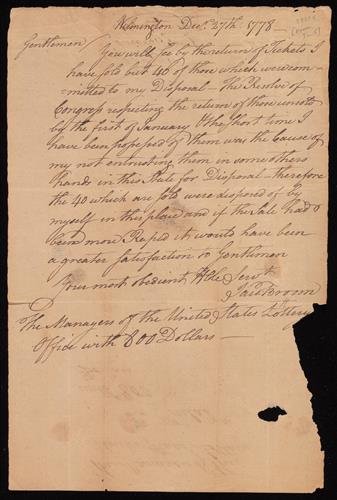 Wilmington Decr. 27th 1778 —
Gentlemen
You will see by the return of Tickets I
have sold but 40 of those which were com-
-mitted to my Disposal — the Resolve of
Congress respecting the return of those unsold
by the first of January & the short time I
have been possessed of them was the Cause of
my not entrusting them in some others
hands in this State for Disposal — therefore
the 40 which are sold were disposed of by
myself in this place and if the Sale had
been more Rapid it would have been
a greater Satisfaction to Gentlemen
Your most obedient Hble Servt
Jas. Brown
The Managers of the United States Lottery
Office with 800 Dollars —